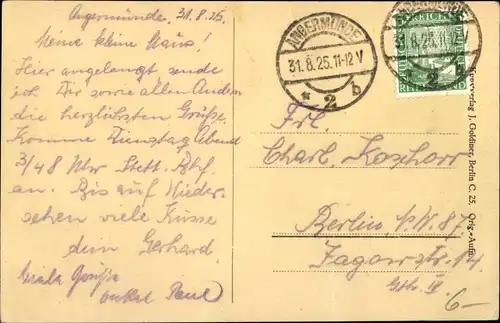 Angermünde. 31.8.25.
Meine kleine Maus!
Hier angelangt sende
ich Dir sowie allen Andern
die herzlichsten Grüße.
Komme Dienstag Abend
3/48 Uhr Stett. Bhf.
an. Bis auf Wieder-
sehen viele Küsse
dein Gerhard.
Viele Grüße
onkel Paul
ANGERMÜNDE
31.8.25.11-12V
* 2 b
31.8.25.11-12V
* 2 b
Frl.
Charl. Koschorr
Berlin N.W. 87.
Jagowstr. 14
Gth. IV
6-
Kunstverlag J. Goldiner, Berlin C. 25. Orig.-Aufn.